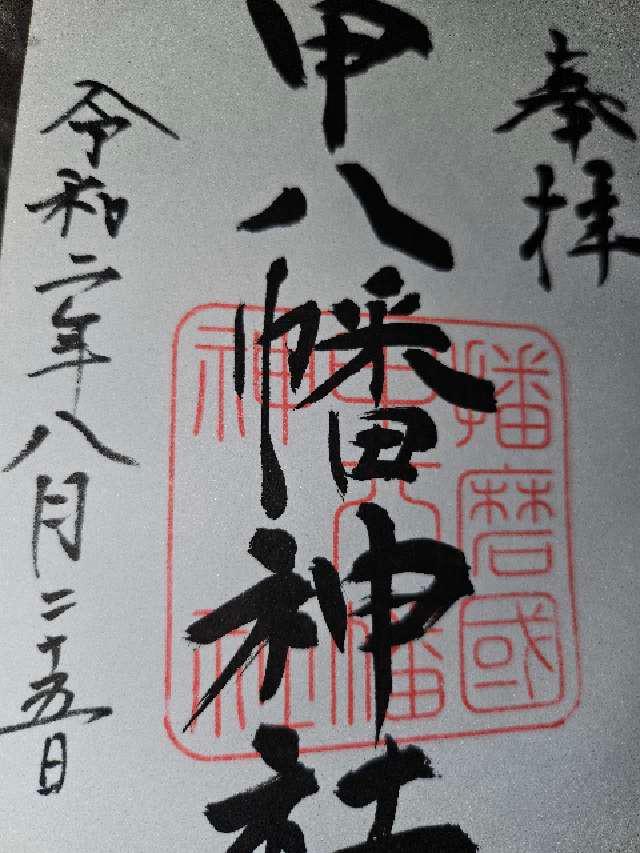 奉拝
甲八幡神社
播磨國
甲八幡
神社
令和二年八月二十五日